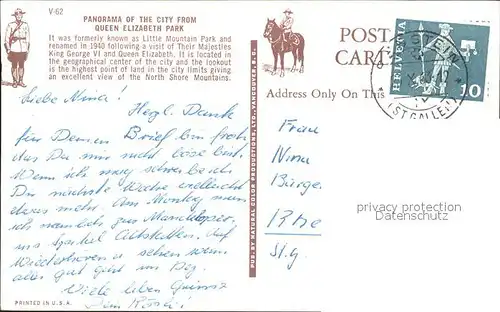 V-62
PANORAMA OF THE CITY FROM
QUEEN ELIZABETH PARK
It was formerly known as Little Mountain Park and
renamed in 1940 following a visit of Their Majesties
King George VI and Queen Elizabeth. It is located
in the geographical center of the city and the lookout
is the highest point of land in the city limits giving
an excellent view of the North Shore Mountains.
Liebe Nina!
Herzl. Dank
für Deinen Brief bin froh
das Du mir nicht böse bist.
Wenn ich mag schreibe ich
Dir nächste Woche vielleicht
etwas mehr. Am Montag muss
ich nämlich zur
ins Altstätten. Auf
Wiedersehen wenn
alles gut geht im Dez.
Viele liebe Grüsse
Dein
PRINTED IN U.S.A.
PUB. BY NATURAL COLOR PRODUCTIONS, LTD., VANCOUVER, B.C.
POST
CARD
Address Only On This
HELVETIA
10
(ST.GALLEN)
Frau
Nina
Bürge
Rhe
St.g
privacy protection
Datenschutz